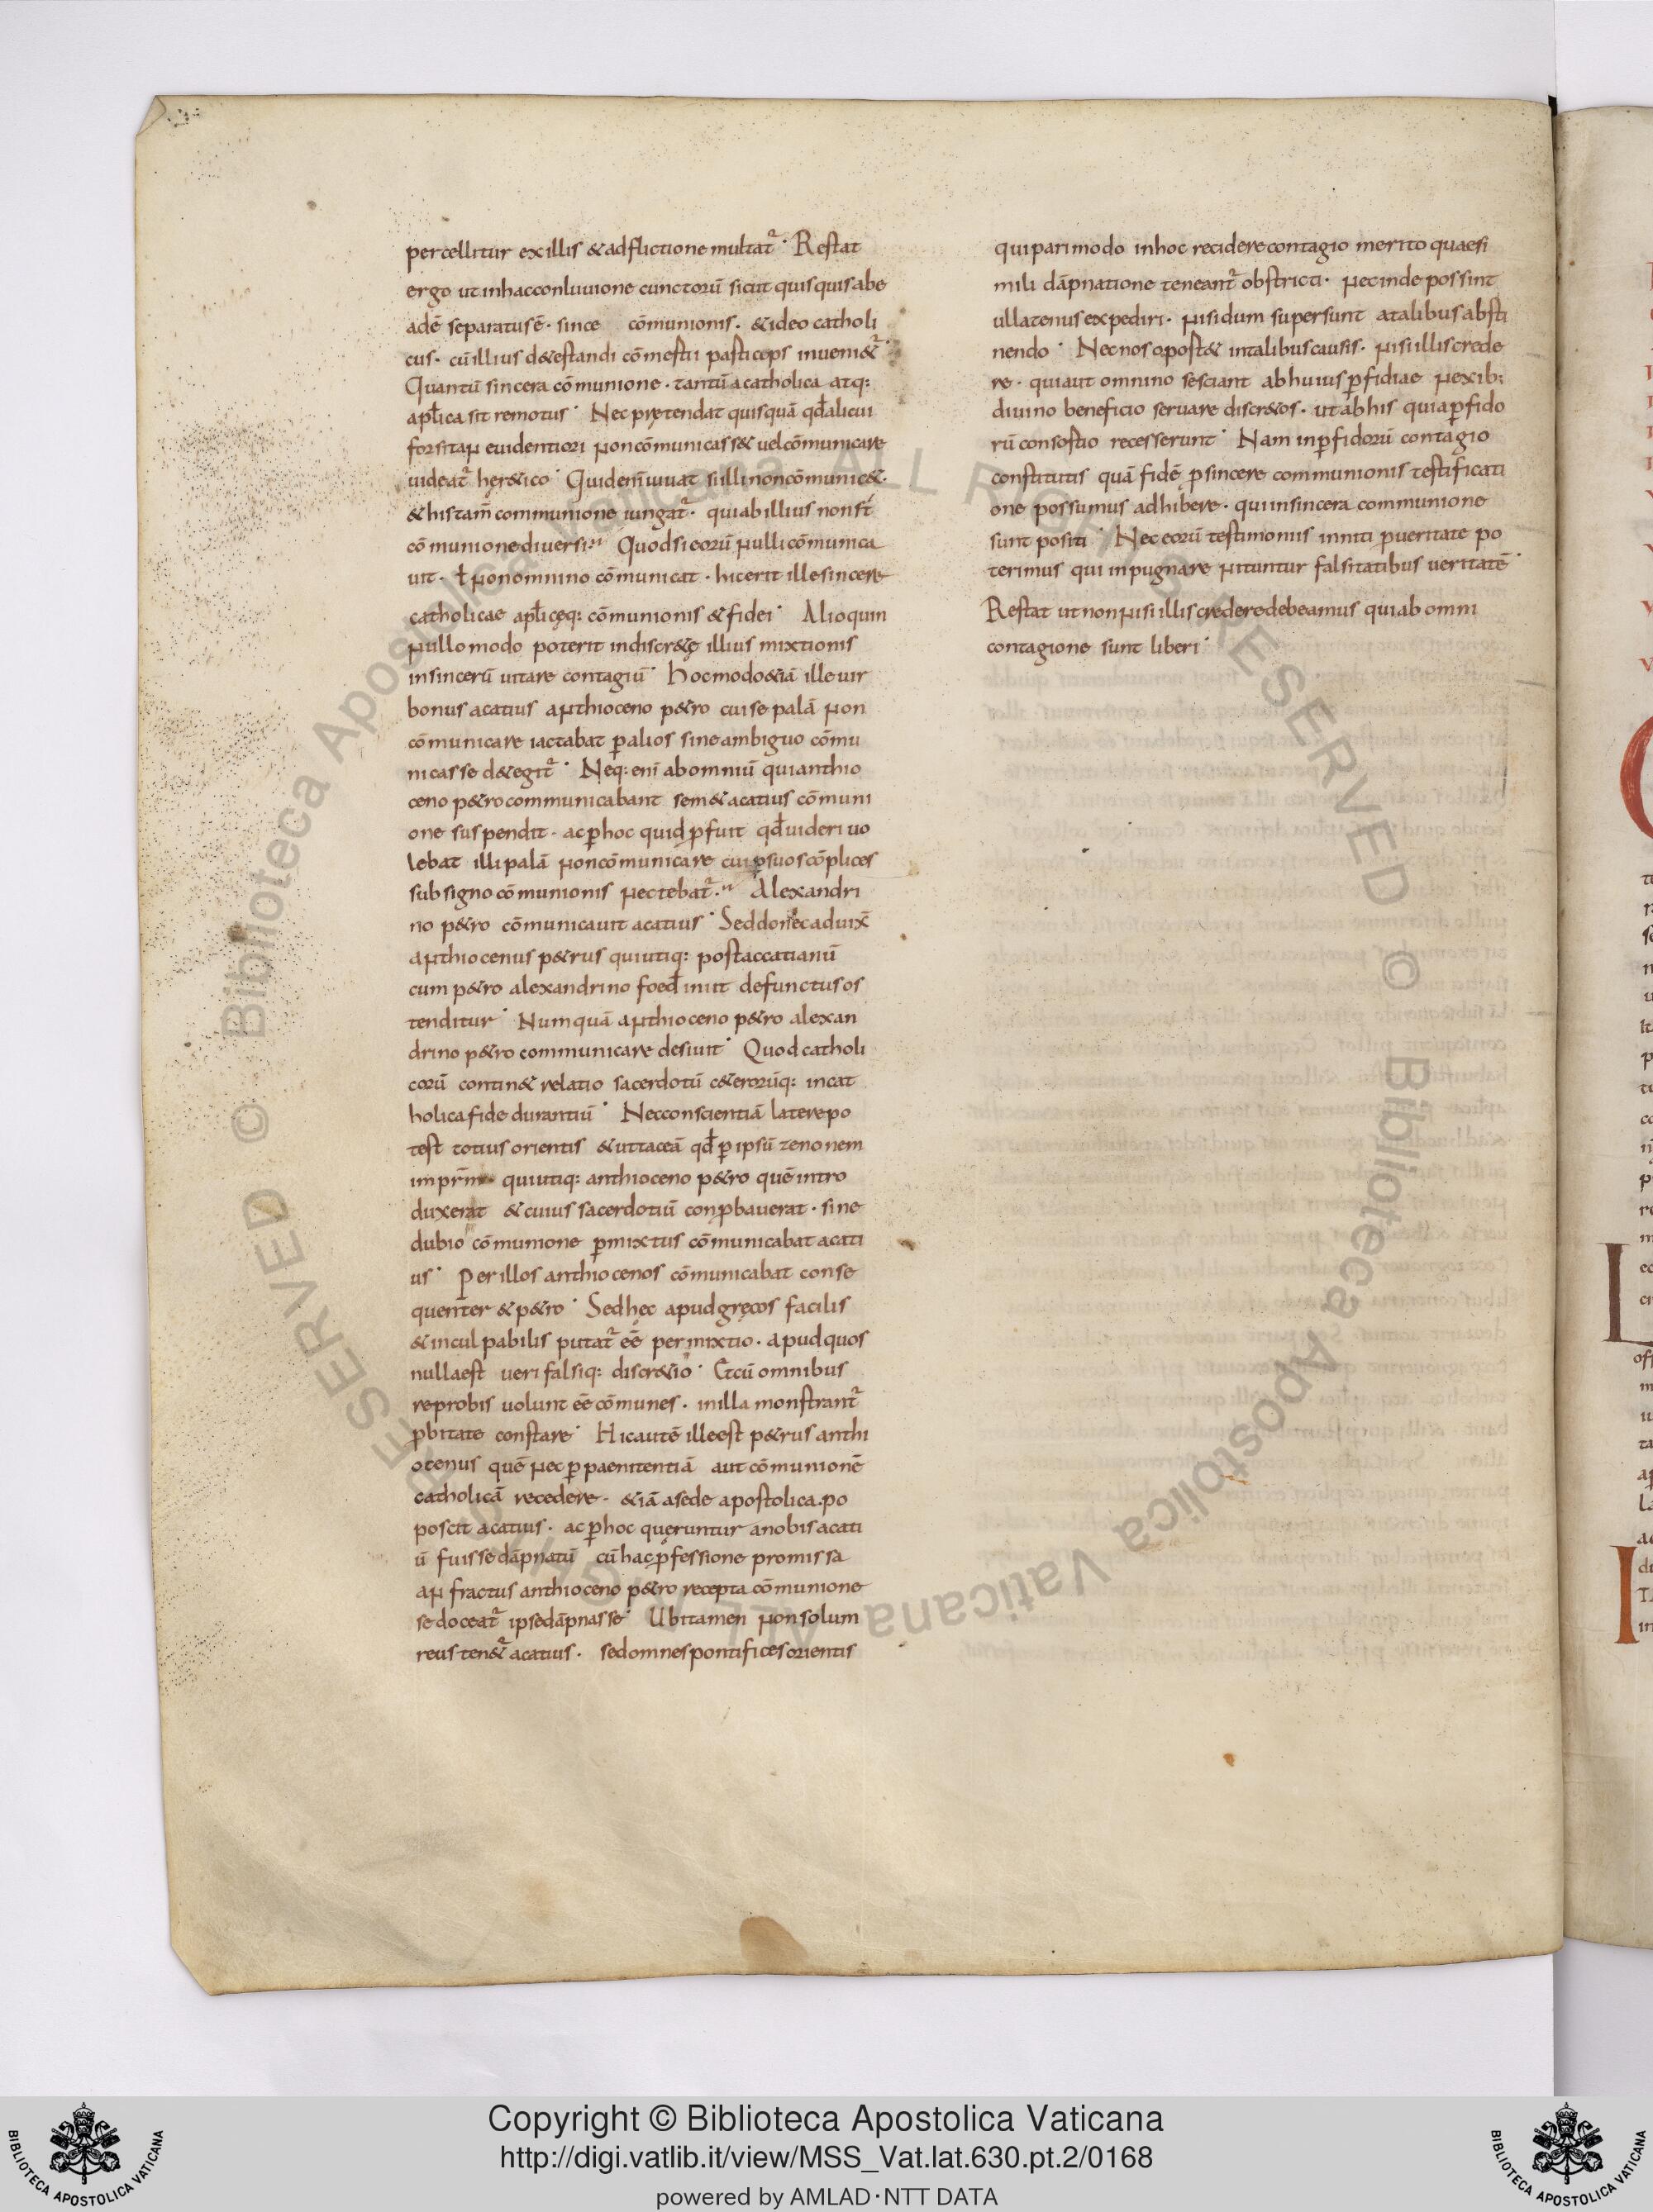 percellitur exillis &adflictione multat᷑. Restat
ergo utinhacconluuione cunctorū sicut quisquisabe
adē separatusē. since cōmunionis. &ideo catholi
cus. cūillius d&estandi cōmestii pasticeps inueni&᷑.
Quantū sincera cōmunione. tantū acatholica atq:
apl̄ica sit remotus. Nec pretendat quisquā qđalicui
forsitan euidentiori noncōmunicass& uelcōmunicare
uideat᷑ her&ico. Quidenīiuuat siillinoncōmunic&.
&histam̄ communione iungat᷑. quiabillius nonst̄
cōmunionediuersi. Quodsieorū nullicōmunica
uit. ł nonomnino cōmunicat. hicerit illesincere
catholicae apl̄iceq: cōmunionis &fidei. Alioquin
nullomodo poterit indiscr&ę illius mixtionis
insincerū uitare contagiū. hocmodo&iā illeuir
bonus acatius anthioceno p&ro cuise palā non
cōmunicare iactabat palios sineambiguo cōmu
nicasse d&egit᷑. Neq: enī abomniū quianthio
ceno p&rocommunicabant sem& acatius cōmuni
one suspendit. ac phoc quid pfuit qđuideri uo
lebat illi palā noncōmunicare cui psuos cōplices
subsigno cōmunionis nectebat᷑. Alexandri
no p&ro cōmunicauit acatius. Seddonecaduix̄
anthiocenus p&rus quiutiq: postaccatianū
cum p&ro alexandrino foed̄ iniit defunctusos
tenditur. Numquā anthioceno p&ro alexan
drino p&ro communicare desiuit. Quod catholi
corū contin& relatio sacerdotū c&erorūq: incat
holicafide durantiū. Necconscientiā laterepo
test totius orientis &uttaceā qđ p ipsū zenonem
imprm̄ quiutiq: anthioceno p&ro quē intro
duxerat &cuius sacerdotiū conpbauerat. sine
dubio cōmunione pmixtus cōmunicabat acati
us. Per illos anthiocenos cōmunicabat conse
quenter & p&ro. Sedhęc apud gręcos facilis
&inculpabilis putat᷑ eē permixtio. apudquos
nullaest ueri falsiq: discr&io. Etcū omnibus
reprobis uolunt eē cōmunes. inilla monstrant᷑
pbitate constare. Hicautē illeest p&rus anthi
ocenus quē nec p paenitentiā aut cōmunionē
catholicā recedere. &iā asede apostolica. po
poscit acatius. ac phoc queruntur anobis acati
ū fuisse dāpnatū cū hac pfessione promissa
anfractus anthioceno p&ro recepta cōmunione
se doceat᷑ ipsedāpnasse. Ubitamen nonsolum
reus ten&᷑ acatius. sedomnespontifices orientis
quiparimodo inhoc recidere contagio merito quaesi
mili dāpnatione teneant᷑ obstricti. necinde possint
ullatenus expediri. nisidum supersunt atalibus absti
nendo. Necnos opost& intalibus causis. nisiilliscrede
re. quiaut omnino sesciant abhuius pfidiae nexib;
diuino beneficio seruare discr&os. utabhis quiapfido
rū consostio recesserunt. Nam inpfidorū contagio
constitutis quā fidē psincere communionis testificati
one possumus adhibere. quiinsincera communione
sunt positi. Nec eorū testimoniis inniti pueritate po
terimus qui inpugnare nituntur falsitatibus ueritatē.
Restat ut nonnisi illis crederedebeamus quiabomni
contagione sunt liberi.
Copyright © Biblioteca Apostolica Vaticana
http://digi.vatlib.it/view/MSS_Vat.lat.630.pt.2/0168
powered by AMLAD·NTT DATA